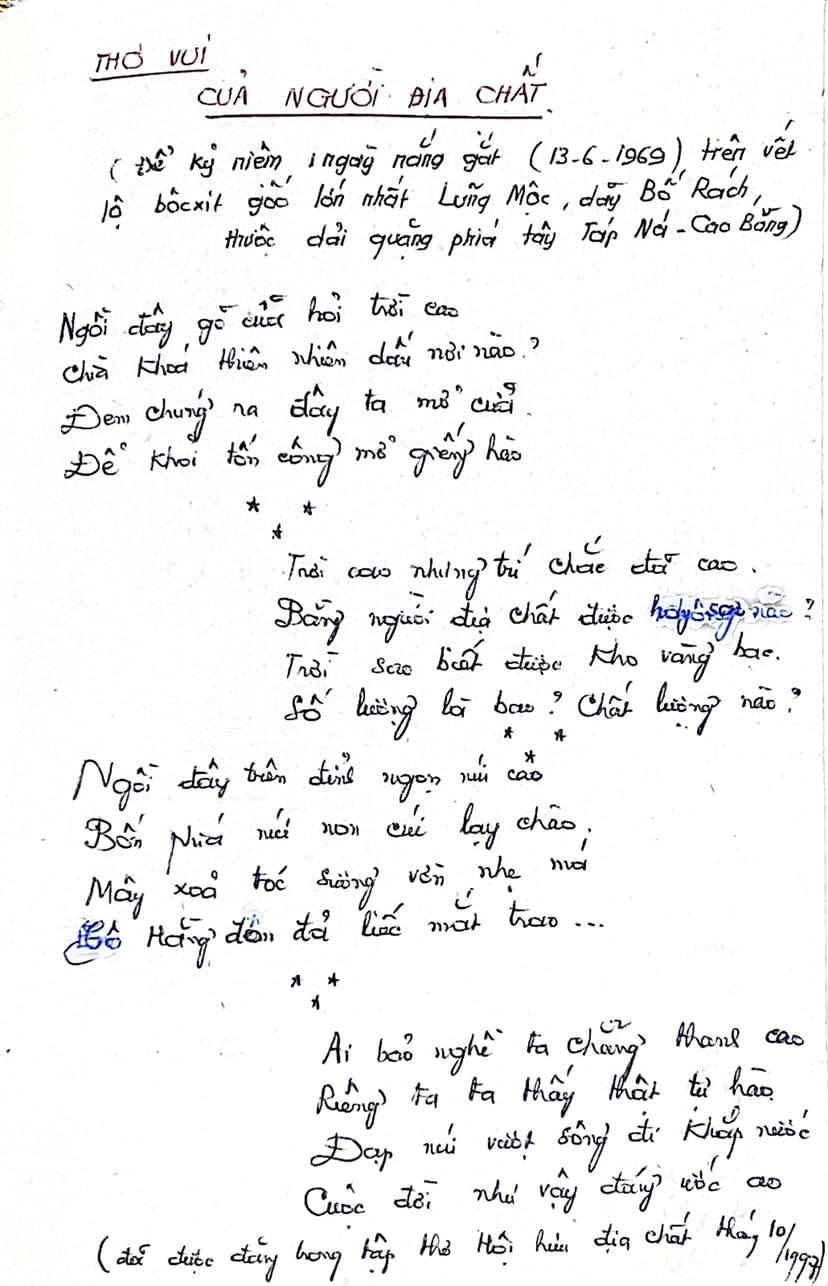 THƠ VUI
CỦA NGƯỜI ĐỊA CHẤT
(Để kỷ niệm 1 ngày nắng gắt (13-6-1969) trên vết
lộ bôcxit gốc lớn nhất Lũng Mộc, dãy Bố Rách,
thuộc dải quặng phía tây Táp Ná - Cao Bằng)
Ngồi đây gõ cửa hỏi trời cao
Chìa khoá thiên nhiên dấu nơi nào?
Đem chúng ra đây ta mở cửa.
Để khỏi tốn công mở giếng hào
* * *
Trời cao nhưng trí chắc đã cao.
Bằng người địa chất được hay sao nào?
Trời sao biết được kho vàng bạc.
Số lượng là bao? Chất lượng nào?
* * *
Ngồi đây trên đỉnh ngọn núi cao
Bốn phía núi non cúi lạy chào,
Mây xoả tóc sương vờn nhẹ má
Cô Hằng đon đả liếc mắt trao...
* * *
Ai bảo nghề ta chẳng thanh cao
Riêng ta ta thấy thật tự hào
Đạp núi vượt sông đi khắp nước
Cuộc đời như vậy đáng ước ao
(đã được đăng trong tập thơ Hội hữu địa chất tháng 10/1997)